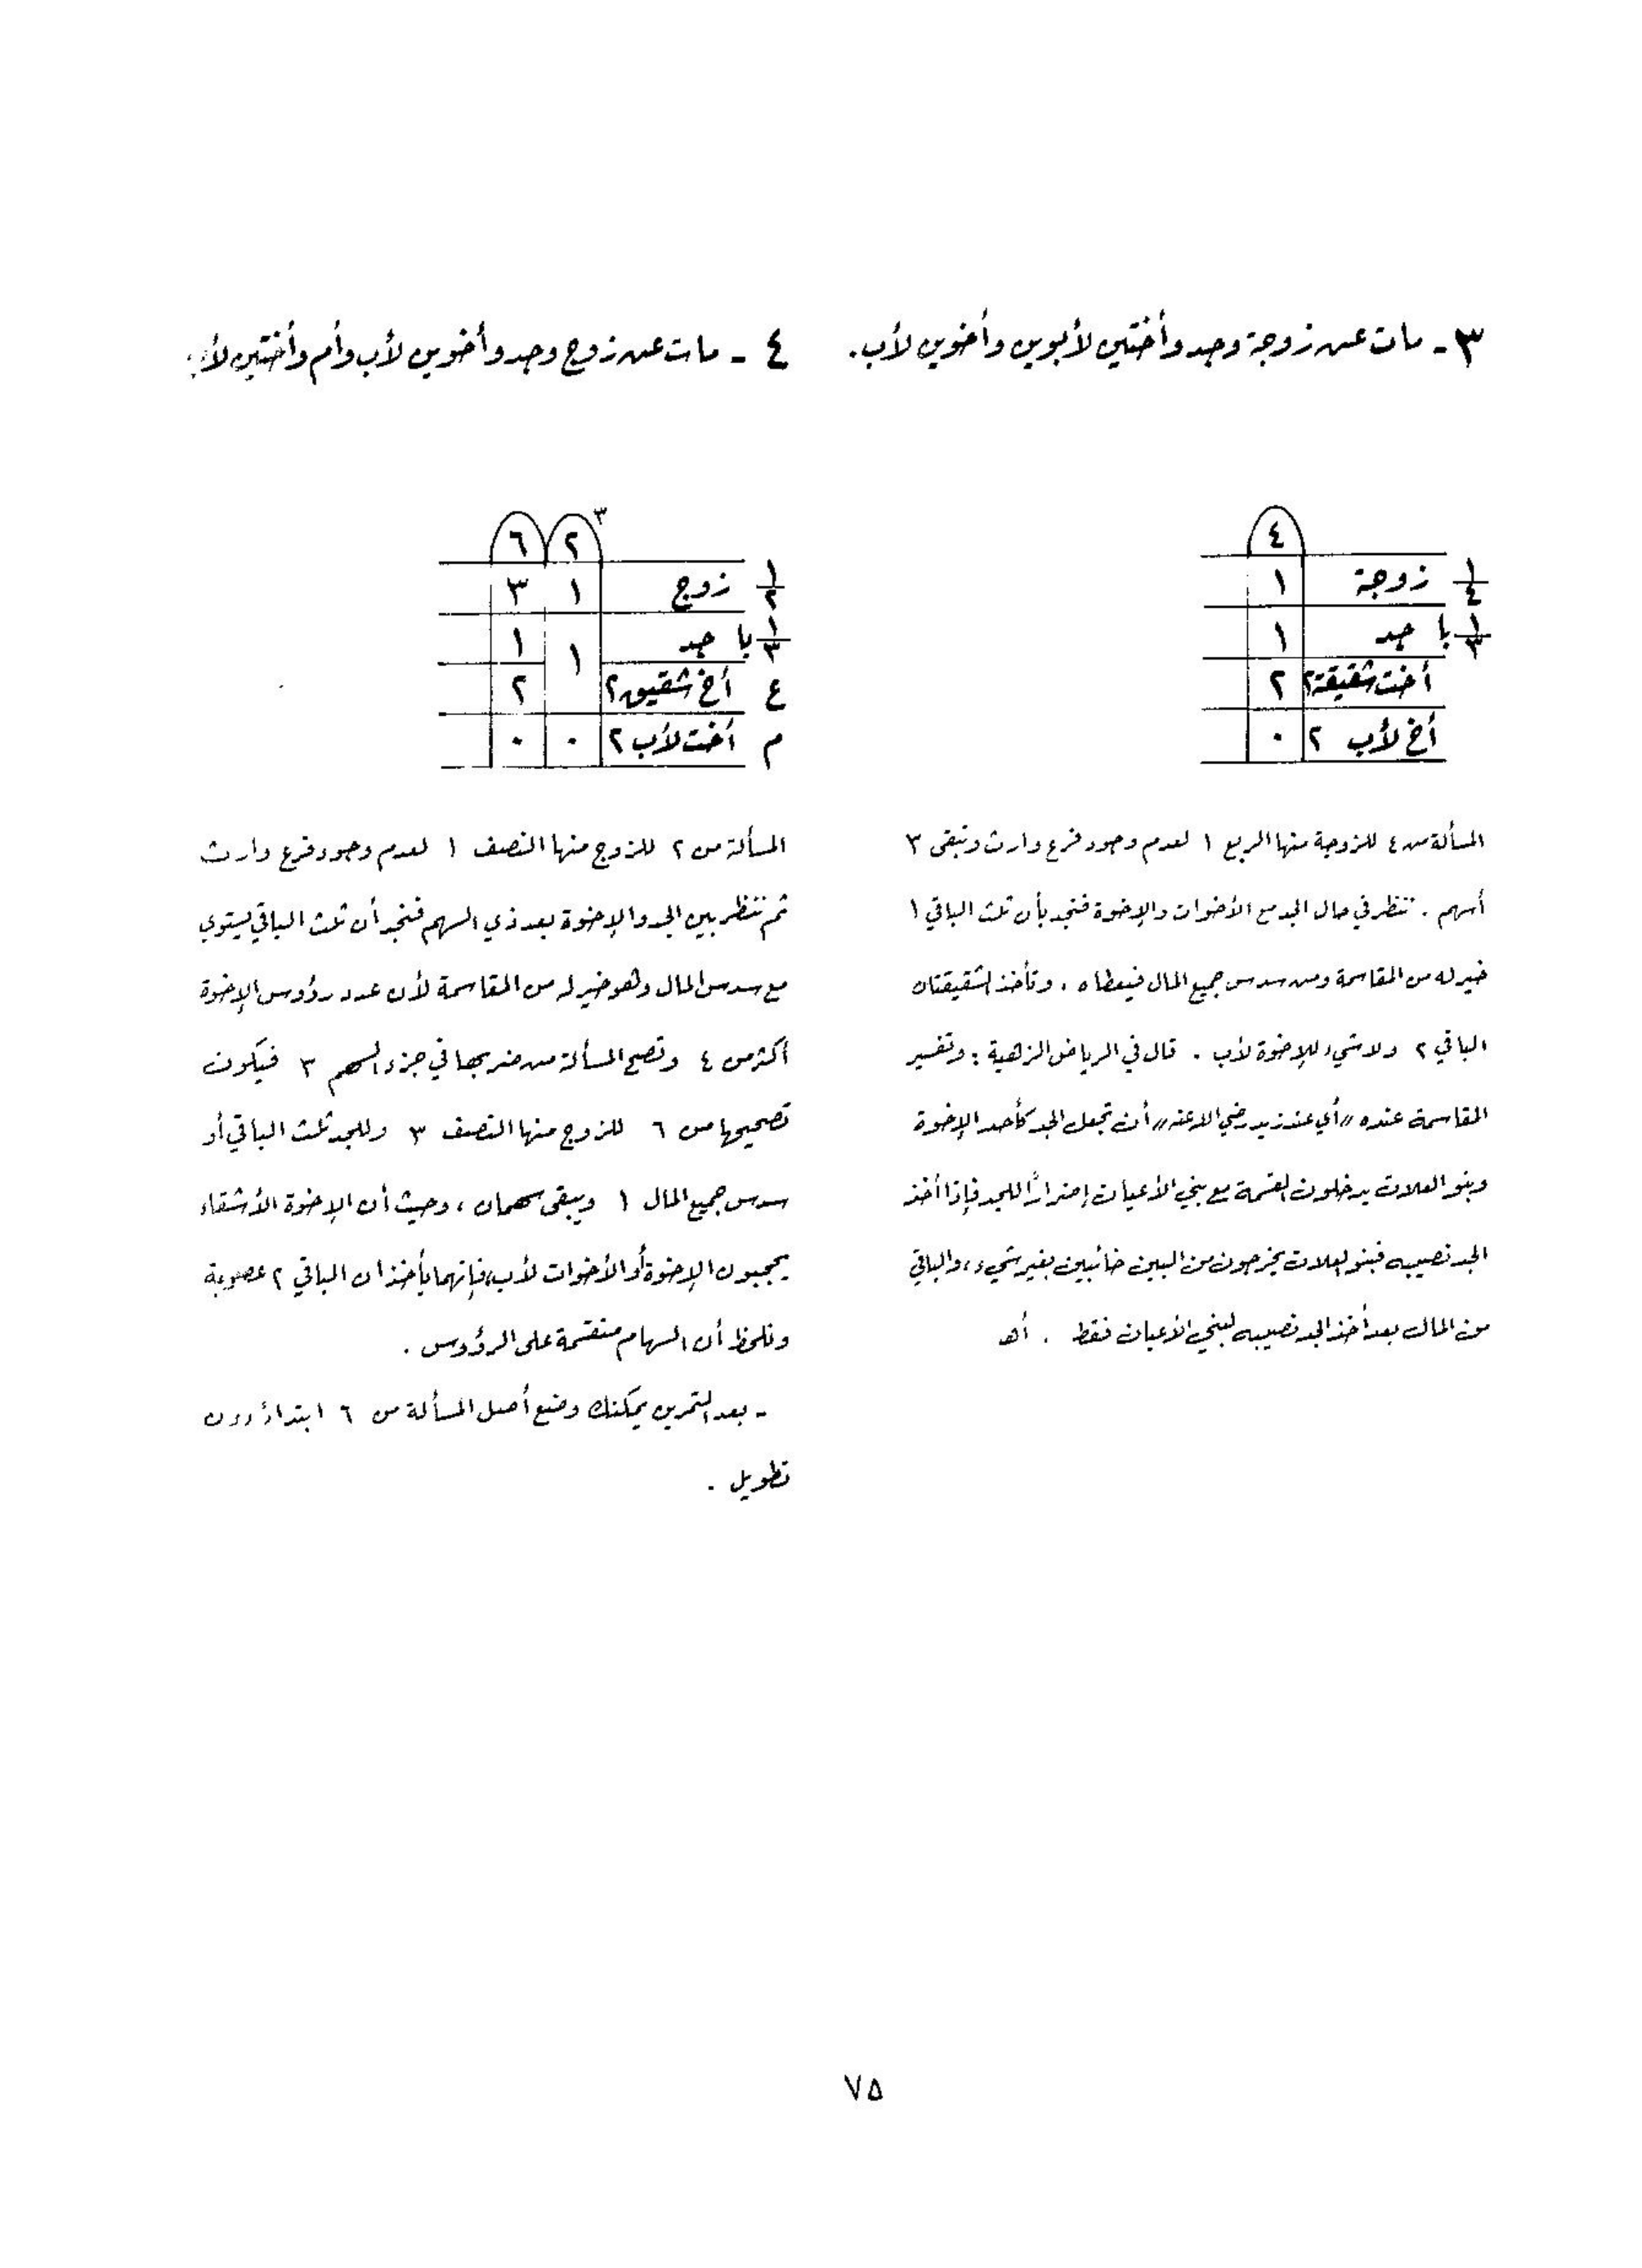 ٣ - مات عن زوجة وجد وأختين لأبوين وأخوين لأب.
٤
١/٤ زوجة ١
١/٣ با جد ١
أخت شقيقة ٢ ٢
أخ لأب ٢ ٠
المسألة من ٤ للزوجة منها الربع ١ لعدم وجود فرع وارث وتبقى ٣
أسهم . ننظر في حال الجد مع الأخوات والإخوة فنجد بأن ثلث الباقي ١
خير له من المقاسمة ومن سدس جميع المال فيعطاه ، وتأخذ الشقيقتان
الباقي ٢ ولا شيء للإخوة لأب . قال في الرياض الزهية : وتفسير
المقاسمة عنده "أي عند زيد رضي الله عنه" أن تجعل الجد كأحد الإخوة
وبنو العلات يدخلون القسمة مع بني الأعيان إضراراً للجد فإذا أخذ
الجد نصيبه فبنو العلات يخرجون من البين خائبين بغير شيء ، والباقي
من المال بعد أخذ الجد نصيبه لبني الأعيان فقط . أهـ
٤ - مات عن زوج وجد وأخوين لأب وأم وأختين لأب
٣
٢ ٦
١/٢ زوج ١ ٣
١/٣ با جد ١ ١
ع أخ شقيق ٢ ٢
م أخت لأب ٢ ٠ ٠
المسألة من ٢ للزوج منها النصف ١ لعدم وجود فرع وارث
ثم ننظر بين الجد والإخوة بعد ذي السهم فنجد أن ثلث الباقي يستوي
مع سدس المال وهو خير له من المقاسمة لأن عدد رؤوس الإخوة
أكثر من ٤ وتصح المسألة من ضربها في جزء السهم ٣ فيكون
تصحيحها من ٦ للزوج منها النصف ٣ وللجد ثلث الباقي أو
سدس جميع المال ١ ويبقى سهمان ، وحيث أن الإخوة الأشقاء
يحجبون الإخوة أو الأخوات لأب فإنهما يأخذان الباقي ٢ عصوبة
ونلحظ أن السهام منقسمة على الرؤوس .
- بعد التمرين يمكنك وضع أصل المسألة من ٦ ابتداءً دون
تطويل .
٧٥